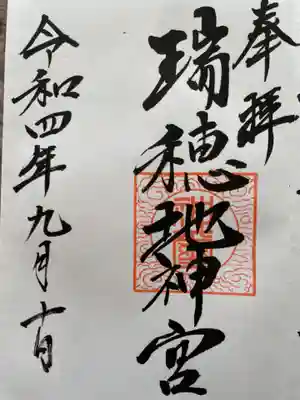 奉拝
瑞穗地神宮
令和四年九月十日